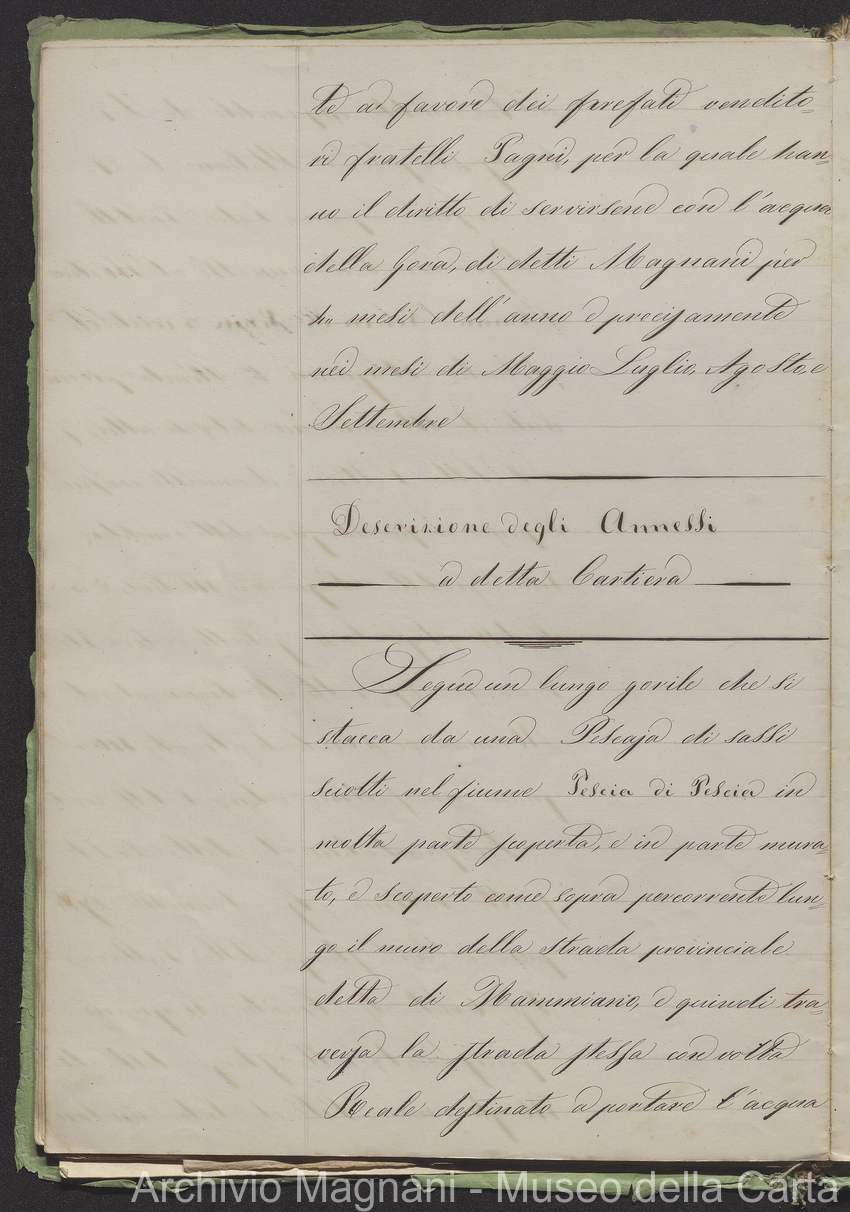 te a favore dei prefati vendito-
ri fratelli Pagni, per la quale han-
no il diritto di servirsene con l'acqua
della Gora, di detti Magnani per
mesi dell'anno e precisamente
nei mesi di Maggio Luglio, Agosto, e
Settembre
Descrizione degli Annessi
a detta Cartiera
Segue un lungo gorile che si
stacca da una Pescaja di sassi
sciolti nel fiume Pescia di Pescia in
molta parte scoperta, e in parte mura-
to, e scoperto come sopra percorrente lun-
go il muro della strada provinciale
detta di Mammiano, e quindi tra-
versa la strada stessa con volta
Reale destinato a portare l'acqua
Archivio Magnani - Museo della Carta